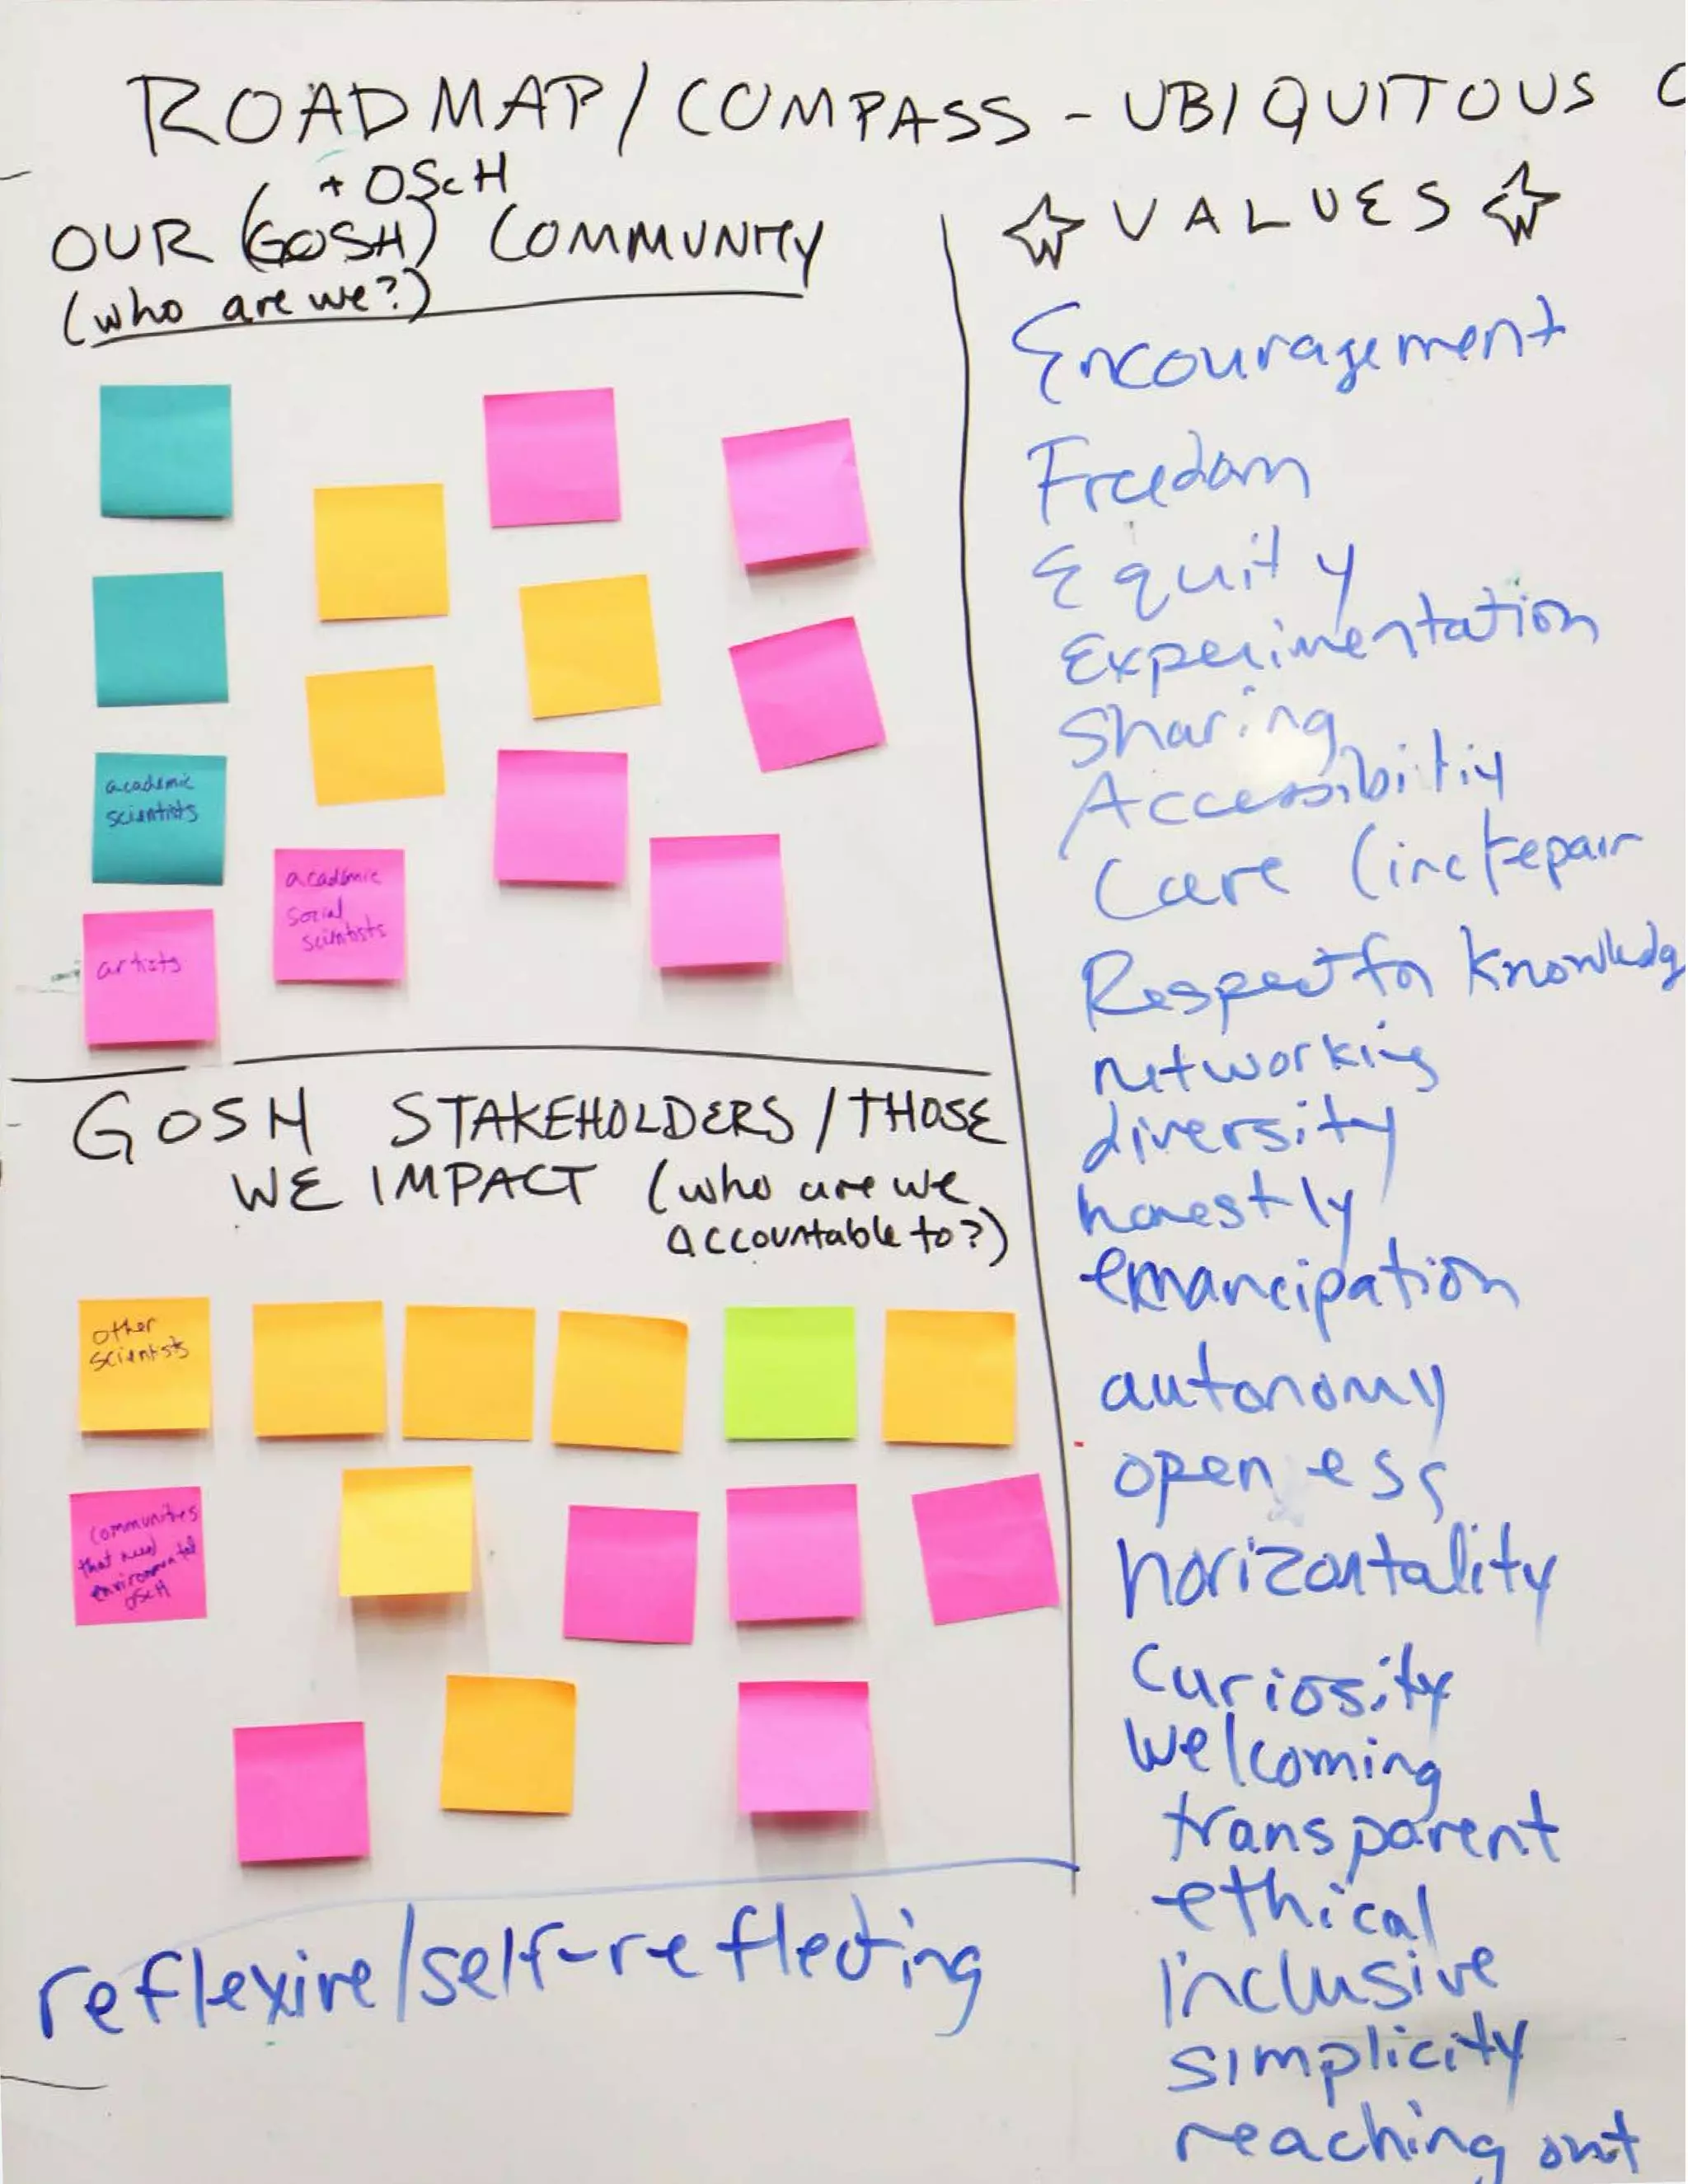 ROADMAP/COMPASS - UBIQUITOUS
+ OScH
OUR (GOSH) COMMUNITY
(who are we?)
academic
scientists
academic
social
scientists
artists
GOSH STAKEHOLDERS / THOSE
WE IMPACT (who are we
accountable to?)
other
scientists
communities
that need
environmental
OScH
reflexive/self-reflecting
VALUES
Encouragement
Freedom
Equity
Experimentation
Sharing
Accessibiltiy
Care (incl repair
Respect for knowledg
networking
diversity
honestly
emancipation
autonomy
open ess
horizontality
Curiosity
Welcoming
transparent
ethical
inclusive
simplicity
reaching out